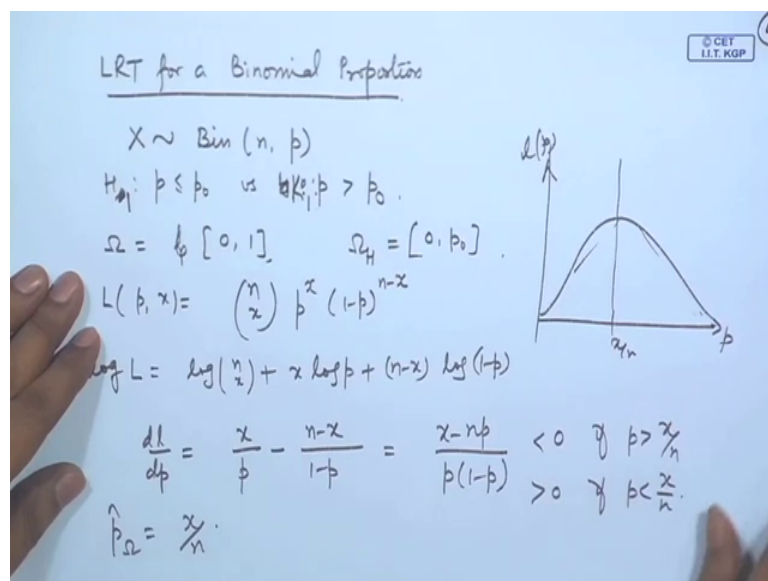 © CET
I.I.T. KGP
LRT for a Binomial Proportion
X ~ Bin (n, p)
H₁: p ≤ p₀ vs K₁: p > p₀.
Ω = [0, 1], Ω_H = [0, p₀].
L(p, x) = (n x) p^x (1-p)^{n-x}
log L = log (n x) + x log p + (n-x) log (1-p)
dl/dp = x/p - (n-x)/(1-p) = (x-np)/(p(1-p)) < 0 if p > x/n
> 0 if p < x/n.
p̂_Ω = x/n.
l(p)
x/n
p